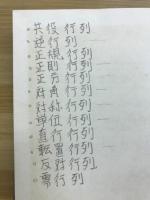 共役行列
逆行列
正規行列
正則行列
正方行列
対角行列
対称行列
単位行列
直行行列
転置行列
反対行列
零行列